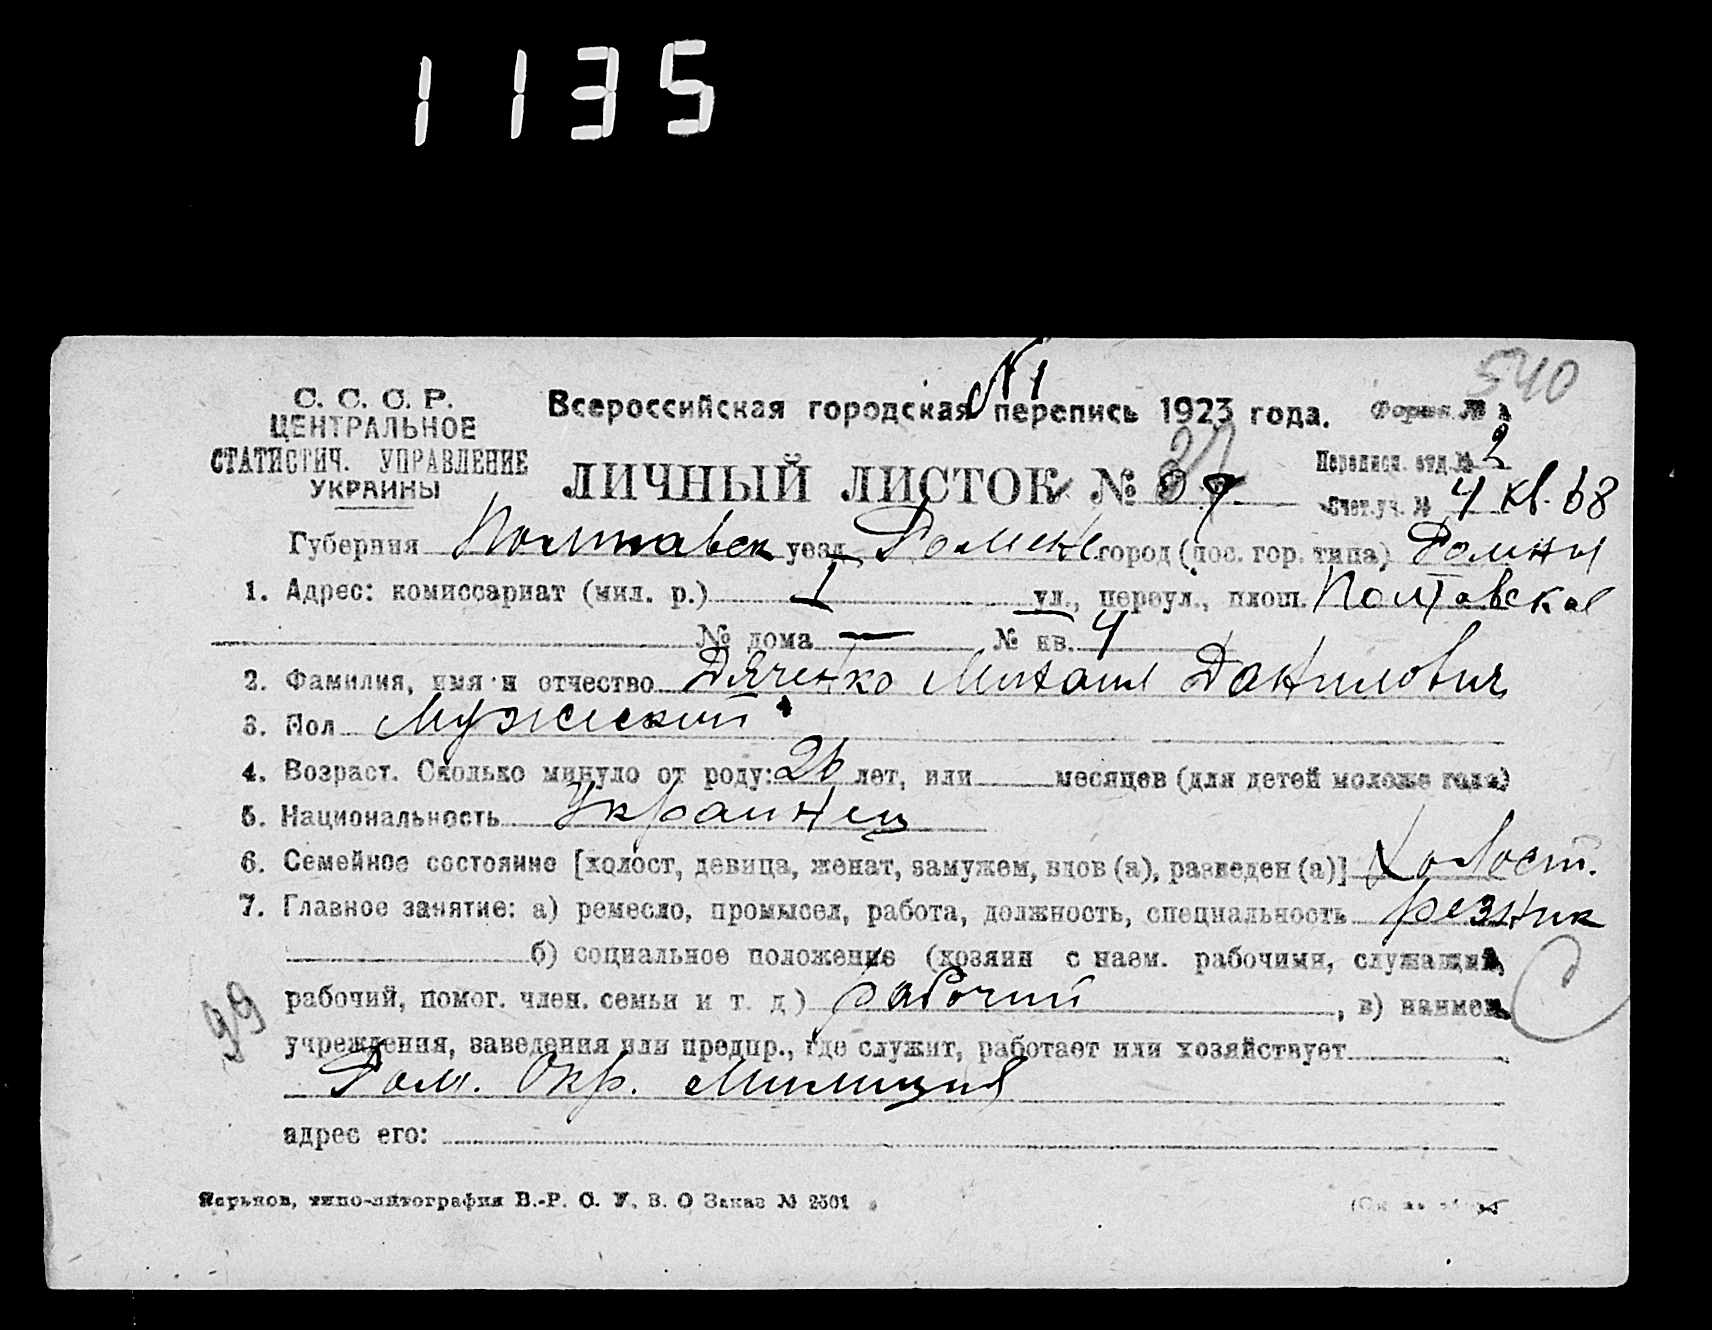 1135
№ 1
540
С. С. С. Р.
ЦЕНТРАЛЬНОЕ
СТАТИСТИЧ. УПРАВЛЕНИЕ
УКРАИНЫ
Всероссийская городская перепись 1923 года. Форма №
ЛИЧНЫЙ ЛИСТОК №
Переписн. отд. № 2
Счет. уч. № 4 кв. 68
Губерния Полтавск уезд Роменск город (пос. гор. типа) Ромны
1. Адрес: комиссариат (мил. р.) I ул., переул., площ. Полтавская
№ дома — № кв. 4
2. Фамилия, имя и отчество Дяченко Михаил Данилович
3. Пол Мужеский
4. Возраст. Сколько минуло от роду: 26 лет, или месяцев (для детей моложе года)
5. Национальность Украинец
6. Семейное состояние [холост, девица, женат, замужем, вдов (а), разведен (а)] Холост.
7. Главное занятие: а) ремесло, промысел, работа, должность, специальность резник
б) социальное положение (хозяин с наем. рабочими, служащий,
рабочий, помог. член. семьи и т. д) рабочий, в) наимен.
99
учреждения, заведения или предпр., где служит, работает или хозяйствует
Ром. Окр. Милиция
адрес его:
Харьков, типо-литография В.-Р. С. У. В. О Заказ № 2501